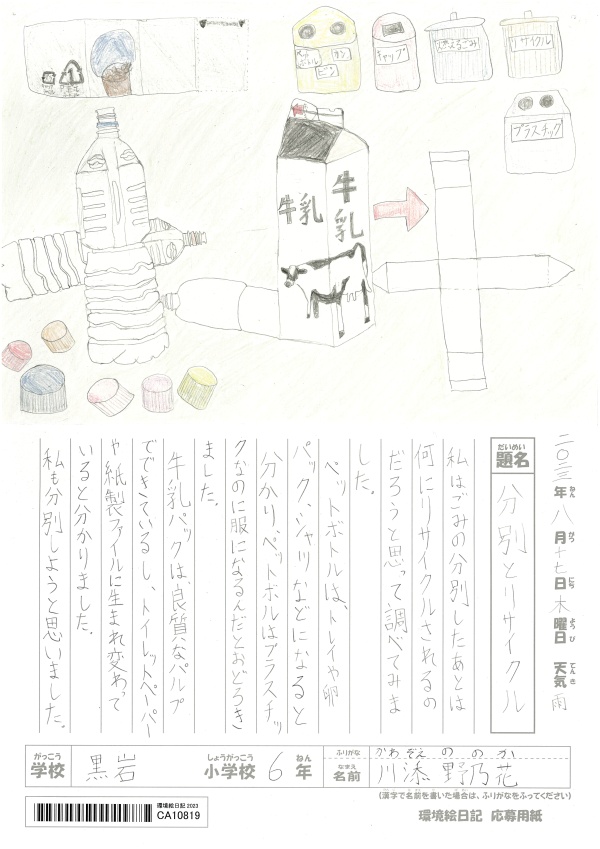 ペットボトル
カン
ビン
キャップ
もえるごみ
リサイクル
プラスチック
牛乳
牛乳
年
八
月
十七
日
木
曜日
天気
雨
ねん
がつ
にち
ようび
てんき
だいめい
題名
分別とリサイクル
私はごみの分別したあとは
何にリサイクルされるの
だろうと思って調べてみま
した。
ペットボトルは、トレイや卵
パック、シャツなどになると
分かり、ペットボルはプラスチッ
クなのに服になるんだとおどろき
ました。
牛乳パックは、良質なパルプ
でできているし、トイレットペーパー
や紙製ファイルに生まれ変わって
いると分かりました。
私も分別しようと思いました。
がっこう
学校
黒岩
しょうがっこう
小学校
6
ねん
年
ふりがな
かわぞえ ののか
なまえ
名前
川添 野乃花
(漢字で名前を書いた場合は、ふりがなをふってください)
環境絵日記 2023
CA10819
環境絵日記 応募用紙